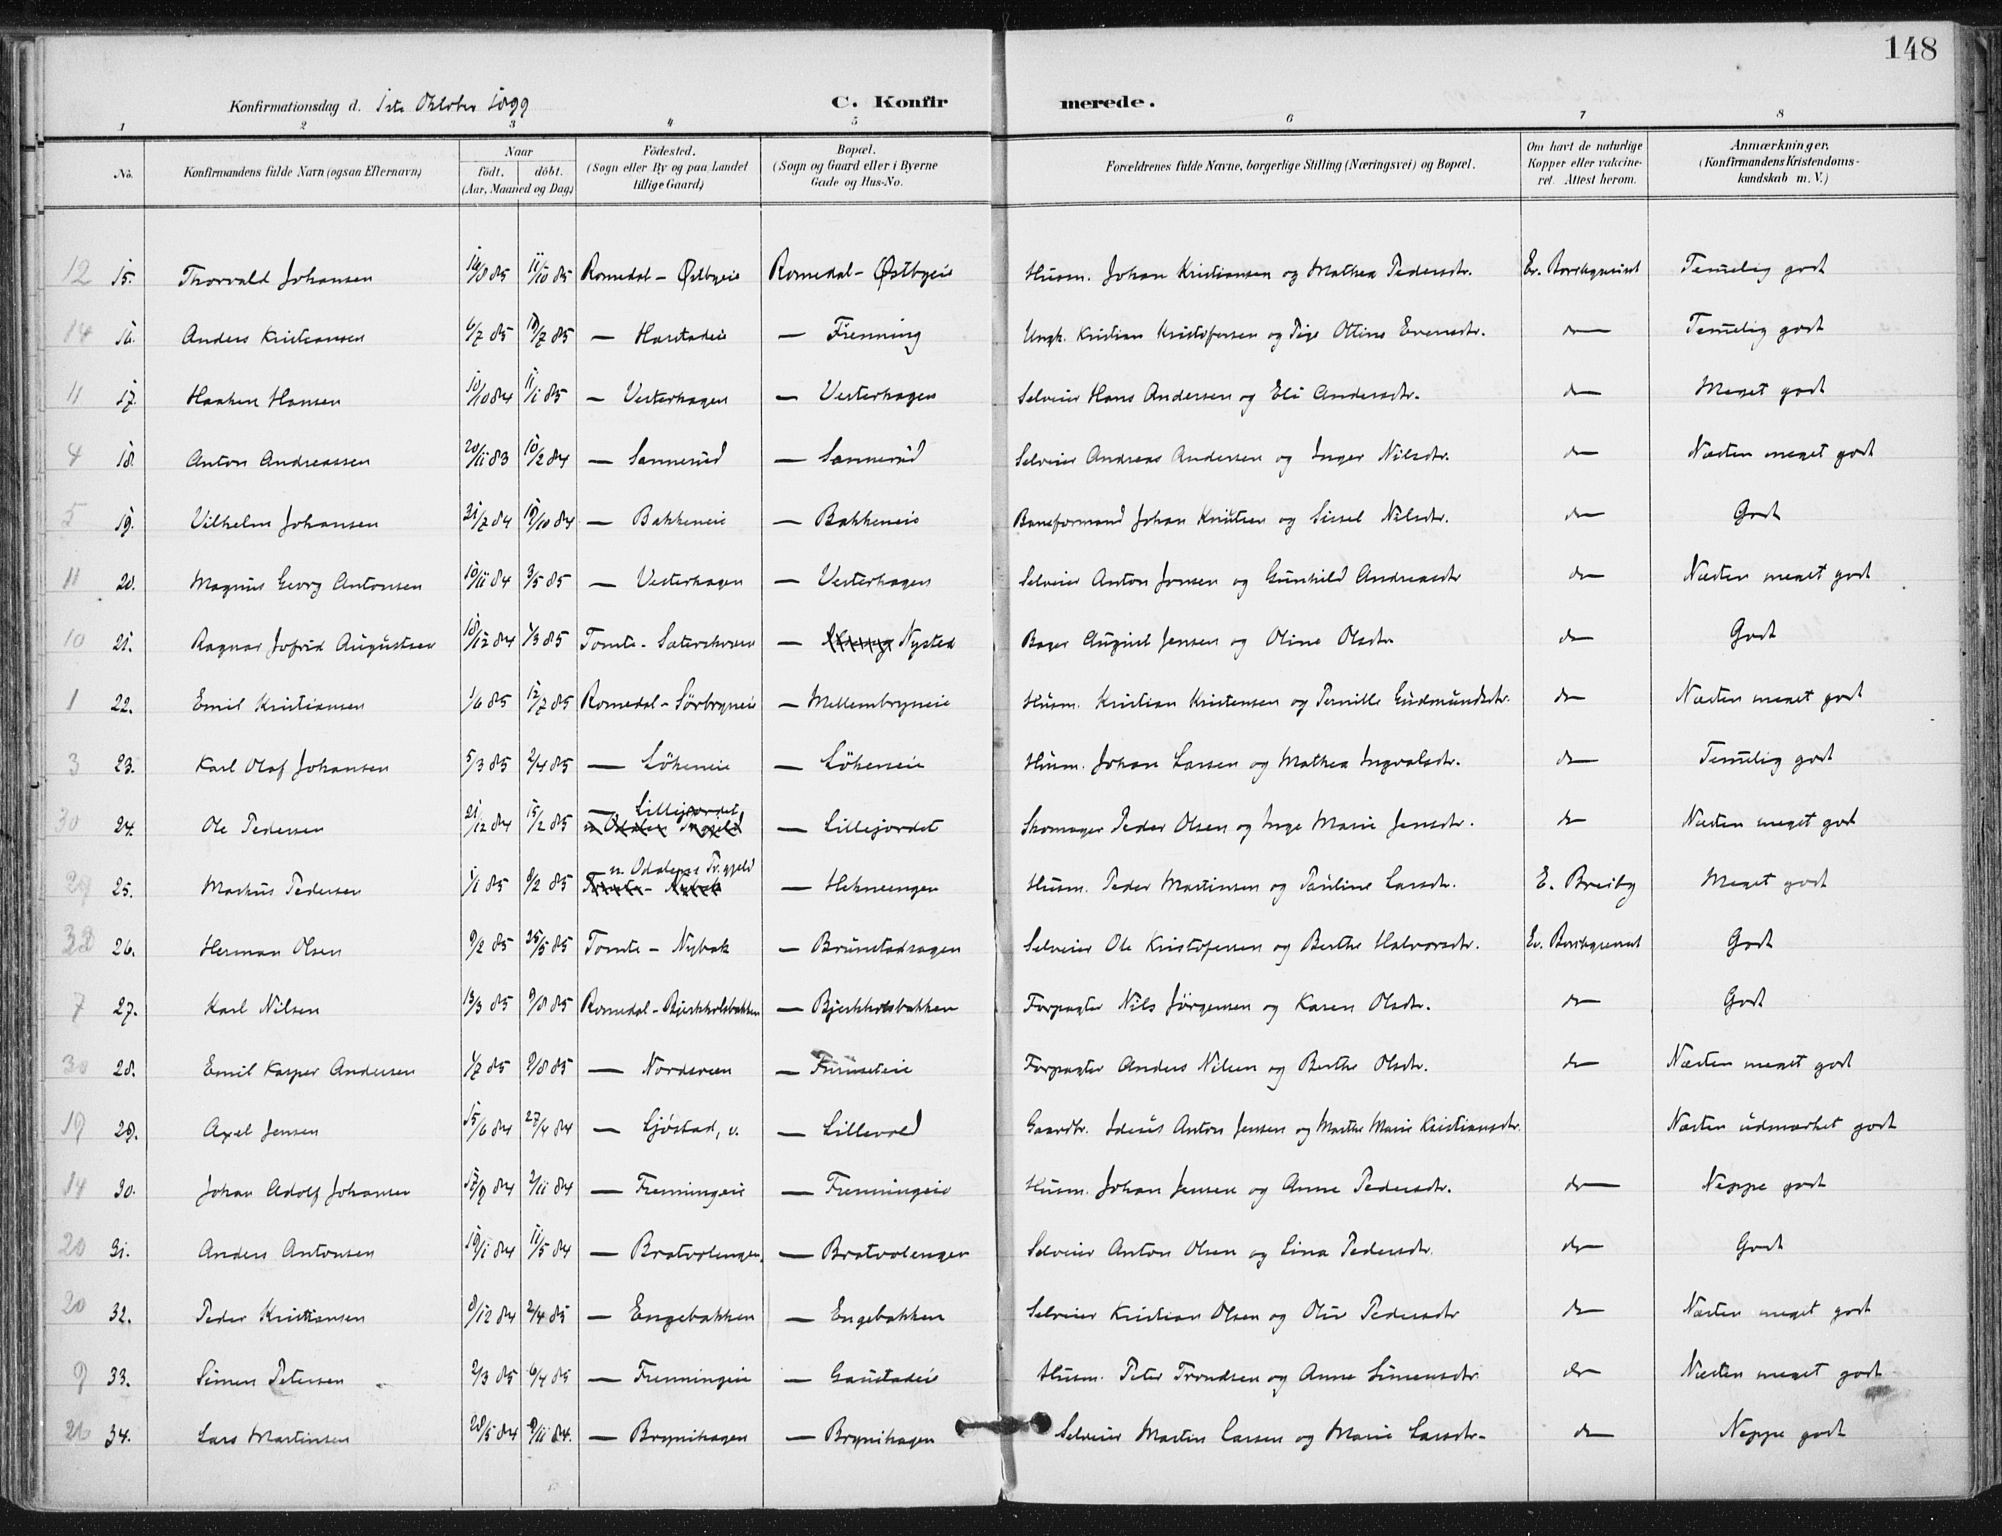 148
Konfirmationsdag d. 1ste Oktober 1899 C. Konfirmerede.
1 2 3 4 5 6 7 8
No. Konfirmandens fulde Navn (ogsaa Efternavn) Naar födt. döbt. (Aar, Maaned og Dag) Födested. (Sogn eller By og paa Landet tillige Gaard) Bopæl. (Sogn og Gaard eller i Byerne Gade og Hus-No. Forældrenes fulde Navne, borgerlige Stilling (Næringsvei) og Bopæl. Om havt de naturlige Kopper eller vakcineret. Attest herom. Anmærkninger. (Konfirmandens Kristendomskundskab m. V.)
12 15. Thorvald Johansen 16/8 85 11/10 85 Romedal - Østbyeie Romedal - Østbyeie Husm. Johan Kristiansen og Mathea Pedersdtr. Temelig godt
14 16. Anders Kristiansen 6/7 85 19/7 85 — Harstadeie — Frenning Ungk. Kristian Kristofersen og Pige Ottine Evensdtr. do Temelig godt
11 17. Haaken Hansen 10/10 84 11/1 85 — Vesterhagen — Vesterhagen Selveier Hans Andersen og Eli Andersdtr. do Meget godt
4 18. Anton Andreassen 20/11 83 10/2 84 — Sannerud — Sannerud Selveier Andreas Andersen og Inger Nilsdtr. do Næsten meget godt
5 19. Vilhelm Johansen 31/7 84 19/10 84 — Bakkeneie — Bakkeneie Baneformand Johan Knutsen og Sissel Nilsdtr. do Godt
11 20. Magnus Georg Antonsen 10/11 84 3/5 85 — Vesterhagen — Vesterhagen Selveier Anton Jensen og Gunhild Andreasdtr do Næsten meget godt
10 21. Ragnar Jofrid Augustsen 18/12 84 1/3 85 Tomte - — Nysted Bager August Jensen og Oline Olsdtr. do Godt
1 22. Emil Kristiansen 1/6 85 12/7 85 Romedal - Sörbryneie — Mellembryneie Husm. Kristian Kristensen og Pernille Gudmundsdtr. do Næsten meget godt
3 23. Karl Olaf Johansen 5/3 85 2/4 85 — Lökeneie — Lökeneie Husm. Johan Larsen og Mathea Ingvalsdtr. do Temelig godt
30 24. Ole Pedersen 21/12 84 15/2 85 — Lillejordet — Lillejordet Skomager Peder Olsen og Inge Marie Jensdtr. do Næsten meget godt
29 25. Markus Pedersen 1/1 85 8/2 85 n. Odalens Pr.gjeld — Hekneengen Husm. Peder Martinsen og Pauline Larsdtr. E. Breiby Meget godt
26. Herman Olsen 9/2 85 25/5 85 Tomte - Nybak — Brunstadsagen Selveier Ole Kristofersen og Berthe Halvorsdtr. Godt
7 27. Karl Nilsen 13/3 85 9/8 85 Romedal - Bjerkholsbakken — Bjerkholsbakken Forpagter Nils Jörgensen og Karen Olsdtr. do Godt
30 28. Emil Kasper Andersen 1/7 85 9/8 85 — Nordsveen — Furuseteie Forpagter Anders Nilsen og Berthe Olsdtr. do Næsten meget godt
19 29. Axel Jensen 27/4 84 — Ljøstad, v. — Lillevold Gaardbr. Anton Jensen og Marthe Marie Kristiansdtr. Næsten udmærket godt
14 30. Johan Adolf Johansen 17/9 84 2/11 84 — Frenningeie — Frenningeie Husm. Johan Jensen og Anne Pedersdtr. do Neppe godt
20 31. Anders Antonsen 19/1 84 11/5 84 — Bratvolengen. — Bratvolengen Selveier Anton Olsen og Lina Pedersdtr. do Godt
20 32. Peder Kristiansen 8/12 84 2/4 85 — Engebakken — Engebakken Selveier Kristian Olsen og Pedersdtr do Næsten meget godt
9 33. Simen Petersen 2/3 85 6/4 85 — Frenningeie — Gaustadeie Husm. Peter Trondsen og Anne Simensdtr do Næsten meget godt
26 34. Lars Martinsen 28/5 84 9/11 84. — Brynihagen — Brynihagen Selveier Martin Larsen og Marie Larsdtr. do Neppe godt